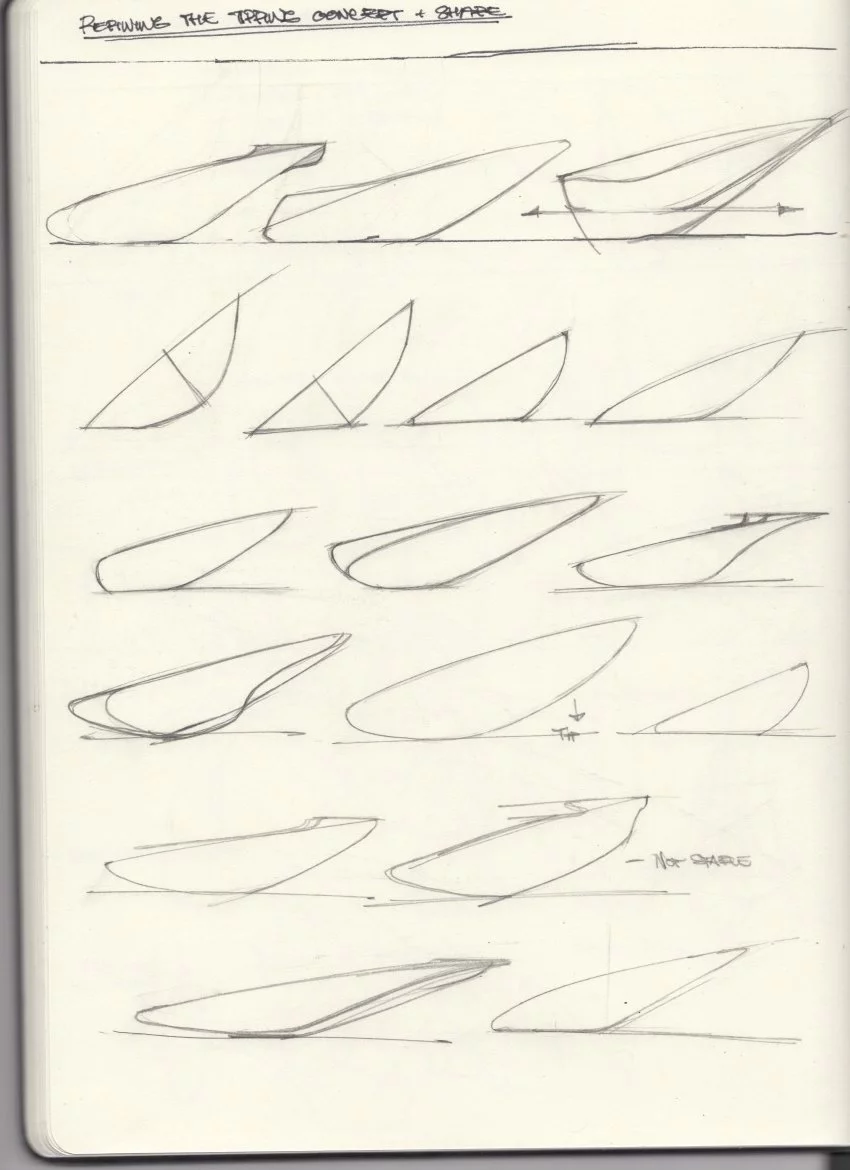 REFINING THE TIPPING CONCEPT + SHAPE
TIP
- NOT STABLE